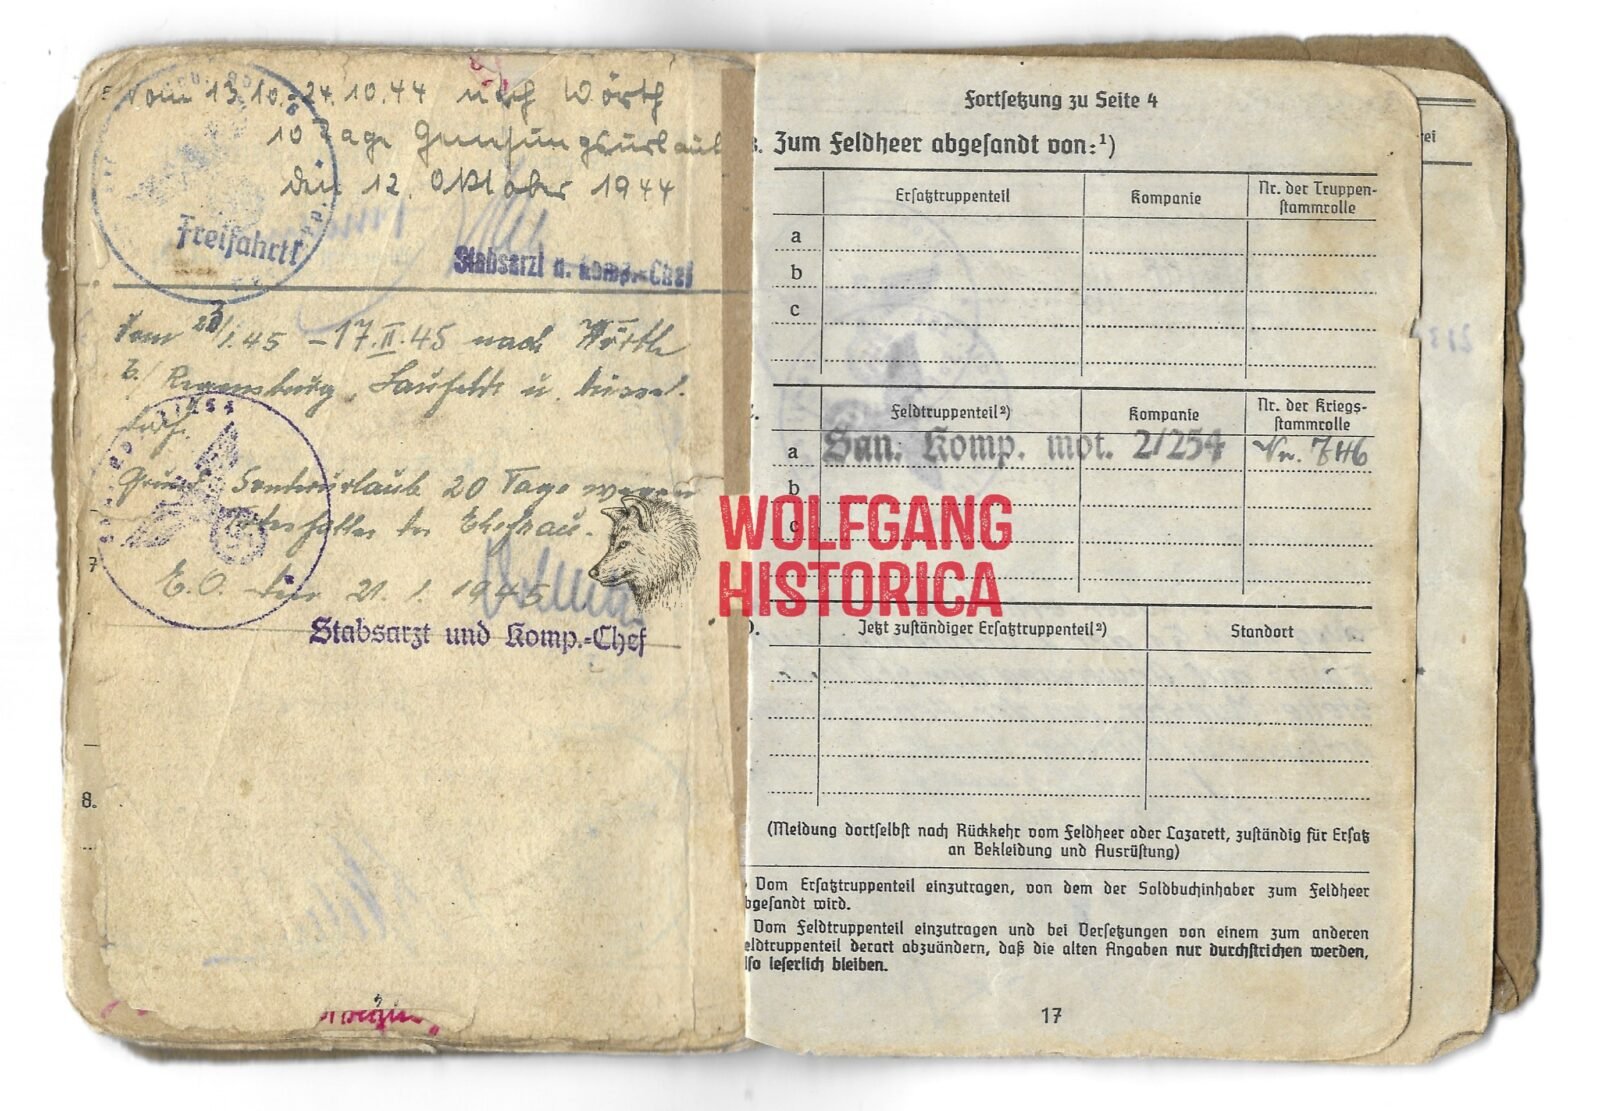 Vom 13.10.-24.10.44 nach Wörth
10 Tage Genesungsurlaub
den 12. Oktober 1944
Freifahrt
Stabsarzt u. Komp.-Chef
Vom 1.45 - 17.II.45 nach Wörth
b/ Regensburg, u.
Grund: Sonderurlaub 20 Tage wegen
der Ehefrau.
den 21. 1. 1945
Stabsarzt und Komp.-Chef
7
8.
Fortsetzung zu Seite 4
Zum Feldheer abgesandt von:¹)
Ersatztruppenteil Kompanie Nr. der Truppen-
stammrolle
a
b
c
Feldtruppenteil²) Kompanie Nr. der Kriegs-
stammrolle
a San. Komp. mot. 2/254 Nr. 746
b
c
WOLFGANG
HISTORICA
Jetzt zuständiger Ersatztruppenteil²) Standort
(Meldung dortselbst nach Rückkehr vom Feldheer oder Lazarett, zuständig für Ersatz
an Bekleidung und Ausrüstung)
Vom Ersatztruppenteil einzutragen, von dem der Soldbuchinhaber zum Feldheer
bgesandt wird.
Vom Feldtruppenteil einzutragen und bei Versetzungen von einem zum anderen
eldtruppenteil derart abzuändern, daß die alten Angaben nur durchstrichen werden,
lso leserlich bleiben.
17